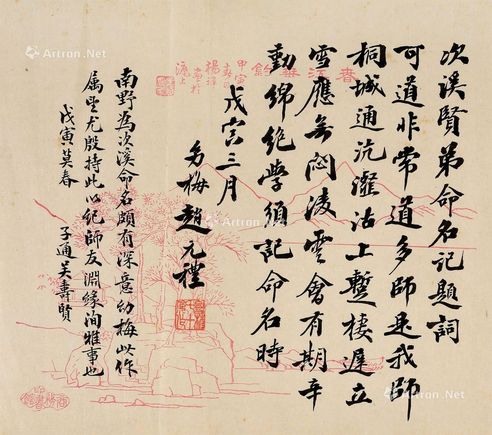 次溪賢弟命名記題詞
可道非常道多師是我師
桐城通沆瀣沽上蹔棲遲立
雪應無悶凌雲會有期辛
勤綿絶學須記命名時
戊寅三月
幼梅趙元禮
南野為次溪命名頗有深意幼梅此作
屬望尤殷持此以紀師友淵緣洵雅事也
戊寅莫春
子通吴壽賢
春江垂釣
甲寅
楊
滬上
Artron.Net
Artron.Net
Artron.Net
Artron.Net